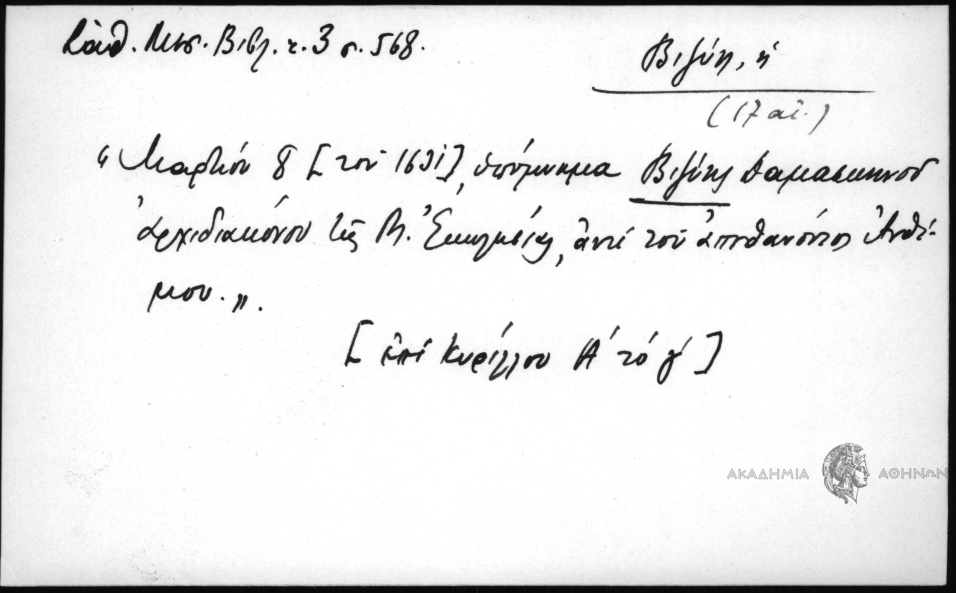 Σάθ. Μεσ. Βιβλ. τ. 3 σ. 568.
Βιζύη, ἡ
(17 αἰ.)
"Μαρτίου 8 [τοῦ 1631], ὑπόμνημα Βιζύης Δαμασκηνοῦ
ἀρχιδιακόνου τῆς Μ. Ἐκκλησίας, ἀντὶ τοῦ ἀποθανόντος Ἀνθί-
μου.".
[ἐπὶ Κυρίλλου Α' τὸ γ']
ΑΚΑΔΗΜΙΑ ΑΘΗΝΩΝ